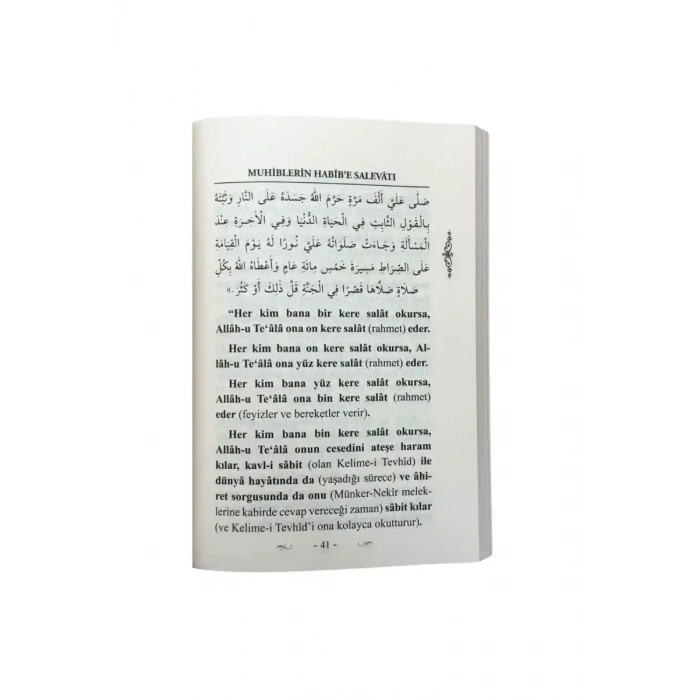 MUHİBLERİN HABÎB'E SALEVÂTI
صَلَّى عَلَيَّ أَلْفَ مَرَّةٍ حَرَّمَ اللهُ جَسَدَهُ عَلَى النَّارِ وَثَبَّتَهُ
بِالْقَوْلِ الثَّابِتِ فِي الْحَيَاةِ الدُّنْيَا وَفِي الْاٰخِرَةِ عِنْدَ
الْمَسْأَلَةِ وَجَاءَتْ صَلَوَاتُهُ عَلَيَّ نُورًا لَهُ يَوْمَ الْقِيَامَةِ
عَلَى الصِّرَاطِ مَسِيرَةَ خَمْسِ مِائَةِ عَامٍ وَأَعْطَاهُ اللهُ بِكُلِّ
صَلَاةٍ صَلَّاهَا قَصْرًا فِي الْجَنَّةِ قَلَّ ذٰلِكَ أَوْ كَثُرَ.»
“Her kim bana bir kere salât okursa,
Allâh-u Te‘âlâ ona on kere salât (rahmet) eder.
Her kim bana on kere salât okursa, Al-
lâh-u Te‘âlâ ona yüz kere salât (rahmet) eder.
Her kim bana yüz kere salât okursa,
Allâh-u Te‘âlâ ona bin kere salât (rahmet)
eder (feyizler ve bereketler verir).
Her kim bana bin kere salât okursa,
Allâh-u Te‘âlâ onun cesedini ateşe haram
kılar, kavl-i sâbit (olan Kelime-i Tevhîd) ile
dünyâ hayâtında da (yaşadığı sürece) ve âhi-
ret sorgusunda da onu (Münker-Nekîr melek-
lerine kabirde cevap vereceği zaman) sâbit kılar
(ve Kelime-i Tevhîd’i ona kolayca okutturur).
- 41 -